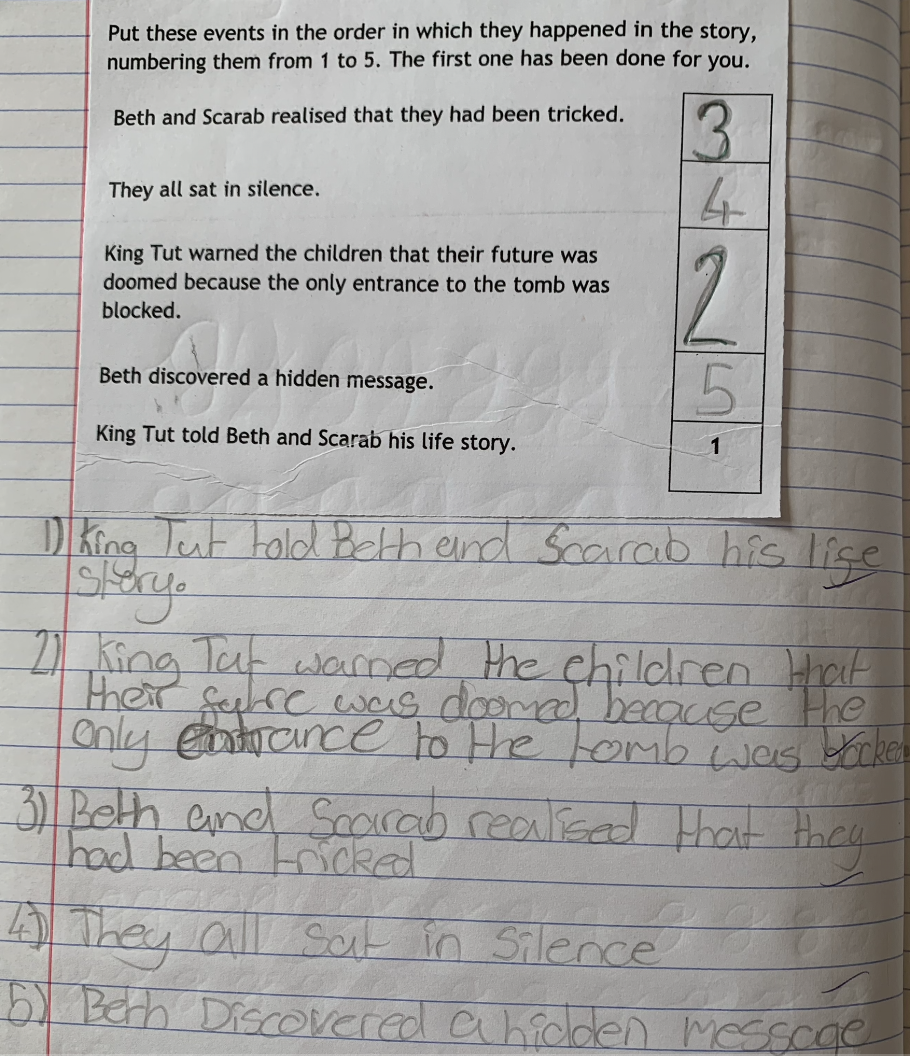 Put these events in the order in which they happened in the story,
numbering them from 1 to 5. The first one has been done for you.
Beth and Scarab realised that they had been tricked. 3
They all sat in silence. 4
King Tut warned the children that their future was
doomed because the only entrance to the tomb was 2
blocked.
Beth discovered a hidden message. 5
King Tut told Beth and Scarab his life story. 1
1) King Tut told Beth and Scarab his life
story.
2) King Tut warned the children that
their futre was doomed because the
only entrance to the tomb was blocked
3) Beth and Scarab realised that they
had been tricked
4) They all sat in silence
5) Beth Discovered a hidden message